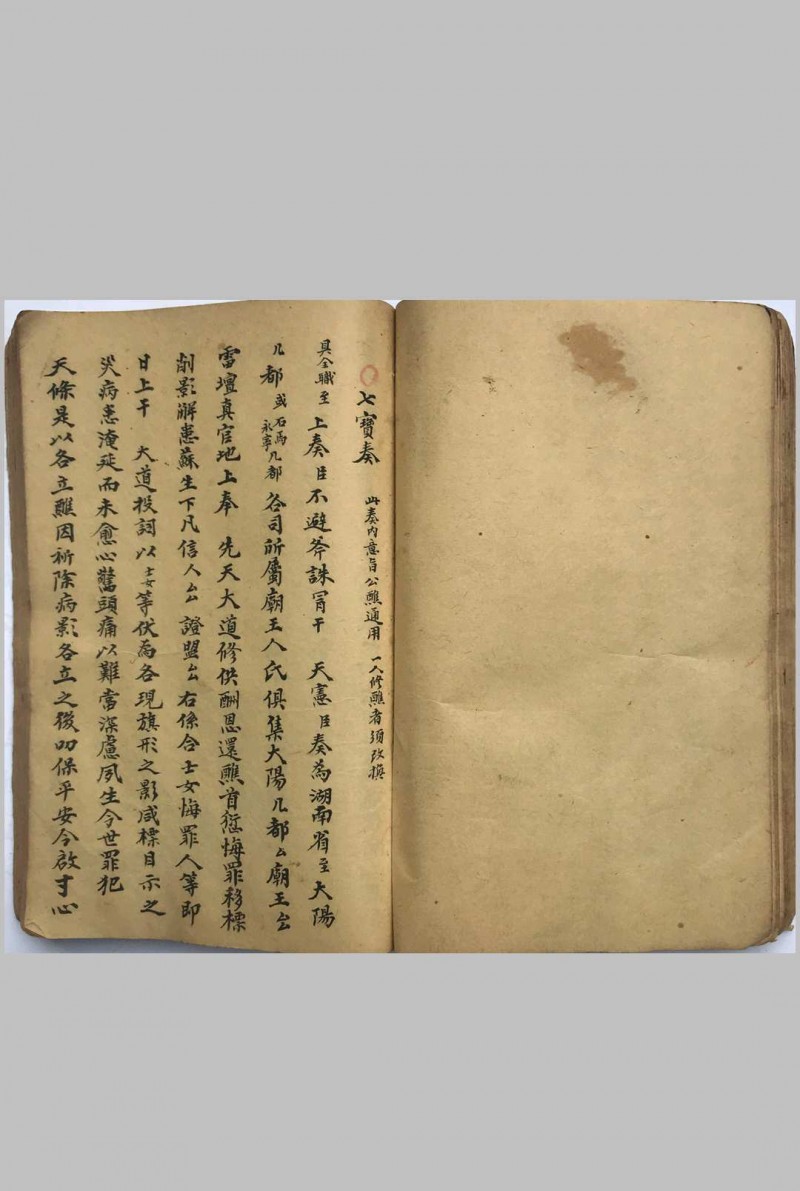 七寶奏 此奏内意旨公醮通用 一人修醮者須改換
具全職至 上奏臣不避斧誅冐干 天憲臣奏為湖南省至大陽
几都或石馬永寧几都 各司所屬廟王人氏俱集大陽几都厶廟王厶厶
雷壇真官地上奉 先天大道修供酬恩還醮首愆悔罪移標
削影解患蘇生下凡信人厶厶 證盟厶厶 右係合士女悔罪人等即
日上干 大道投詞以士女等伏為各現旗形之影咸標目示之
灾病恙淹延而未愈心驚頭痛以難當深慮夙生今世罪犯
天條是以各立醮因祈除病影各立之後叨保平安今啟寸心